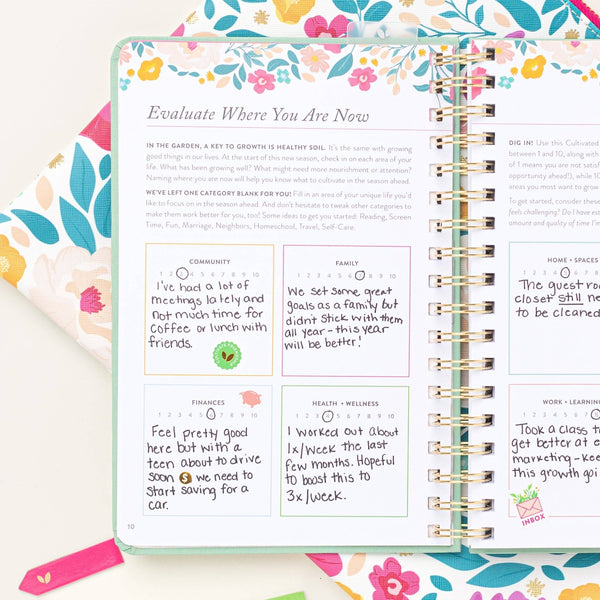 Evaluate Where You Are Now
IN THE GARDEN, A KEY TO GROWTH IS HEALTHY SOIL. It's the same with growing
good things in our lives. At the start of this new season, check in on each area of your
life. What has been growing well? What might need more nourishment or attention?
Naming where you are now will help you know what to cultivate in the season ahead.
WE'VE LEFT ONE CATEGORY BLANK FOR YOU! Fill in an area of your unique life you'd
like to focus on in the season ahead. And don't hesitate to tweak other categories to
make them work better for you, too! Some ideas to get you started: Reading, Screen
Time, Fun, Marriage, Neighbors, Homeschool, Travel, Self-Care.
COMMUNITY
1 2 3 4 5 6 7 8 9 10
I've had a lot of
meetings lately and
not much time for
coffee or lunch with
friends.
FAMILY
1 2 3 4 5 6 7 8 9 10
We set some great
goals as a family but
didn't stick with them
all year - this year
will be better!
FINANCES
1 2 3 4 5 6 7 8 9 10
Feel pretty good
here but with a
teen about to drive
soon $ we need to
start saving for a
car.
HEALTH + WELLNESS
1 2 3 4 5 6 7 8 9 10
I worked out about
1x/week the last
few months. Hopeful
to boost this to
3x/week.
10
DIG IN! Use this Cultivated
between 1 and 10, along with
of 1 means you are not satisf
opportunity ahead!), while 10
areas you most want to grow
To get started, consider these
feels challenging? Do I have est
amount and quality of time I'm
HOME + SPACES
1 2 3 4 5 6 7
The guest roo
closet still ne
to be cleaned
WORK + LEARNING
1 2 3 4 5 6 7
Took a class t
get better at e
marketing - kee
this growth goi
INBOX